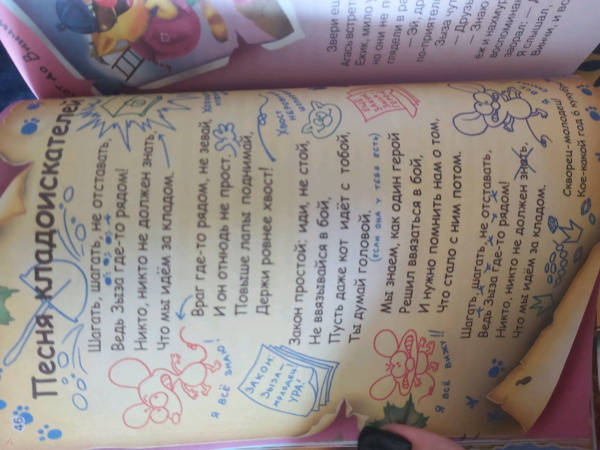 Песня кладоискателей
Шагать, шагать, не отставать,
Ведь Зыза где-то рядом!
Никто, никто не должен знать,
Что мы идём за кладом.
Враг где-то рядом, не зевай,
И он отнюдь не прост.
Повыше лапы поднимай,
Держи ровнее хвост!
Закон простой: иди, не стой,
Не ввязывайся в бой,
Пусть даже кот идёт с тобой,
Ты думай головой.
(ЕСЛИ ОНА У ТЕБЯ ЕСТЬ)
Мы знаем, как один герой
Решил ввязаться в бой,
И нужно помнить нам о том,
Что стало с ним потом.
Шагать, шагать, не отставать,
Ведь Зыза где-то рядом!
Никто, никто не должен знать,
Что мы идём за кладом.
Я ВСЁ ЗНАЮ!
ЗАКОН:
ЗЫЗА-
УРА!
Я ВСЁ ВИЖУ!!
Скворец-молодец
Кое-какой год
45
Звери
Ёжик, мило
но они не
глядели в
— Эй, др
по-приятель
Зыза чут
— Друзь
— Знаю
воспоминан
Я слышал,
Винни, и во